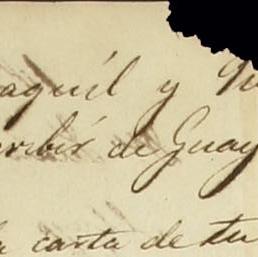 aquil y
ribir de Guay
la carta de tu